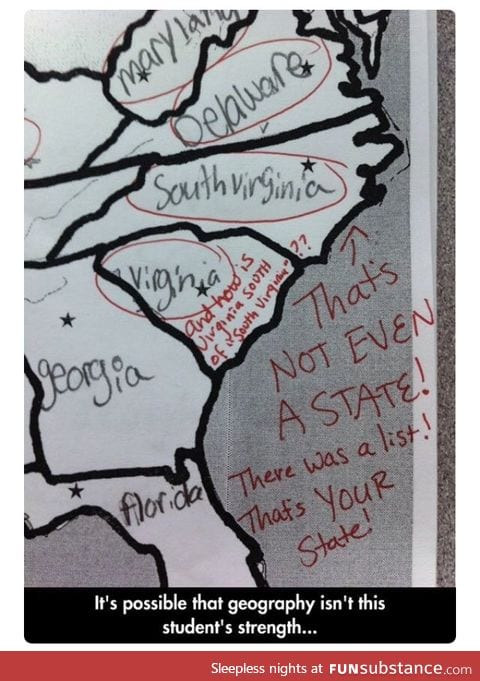 maryland
Delaware
South virginia
virginia
and how is
virginia SOUTH
of "South Virginia"??
georgia
florida
That's
NOT EVEN
A STATE!
There was a list!
That's YOUR
State!
It's possible that geography isn't this
student's strength...
Sleepless nights at FUNsubstance.com